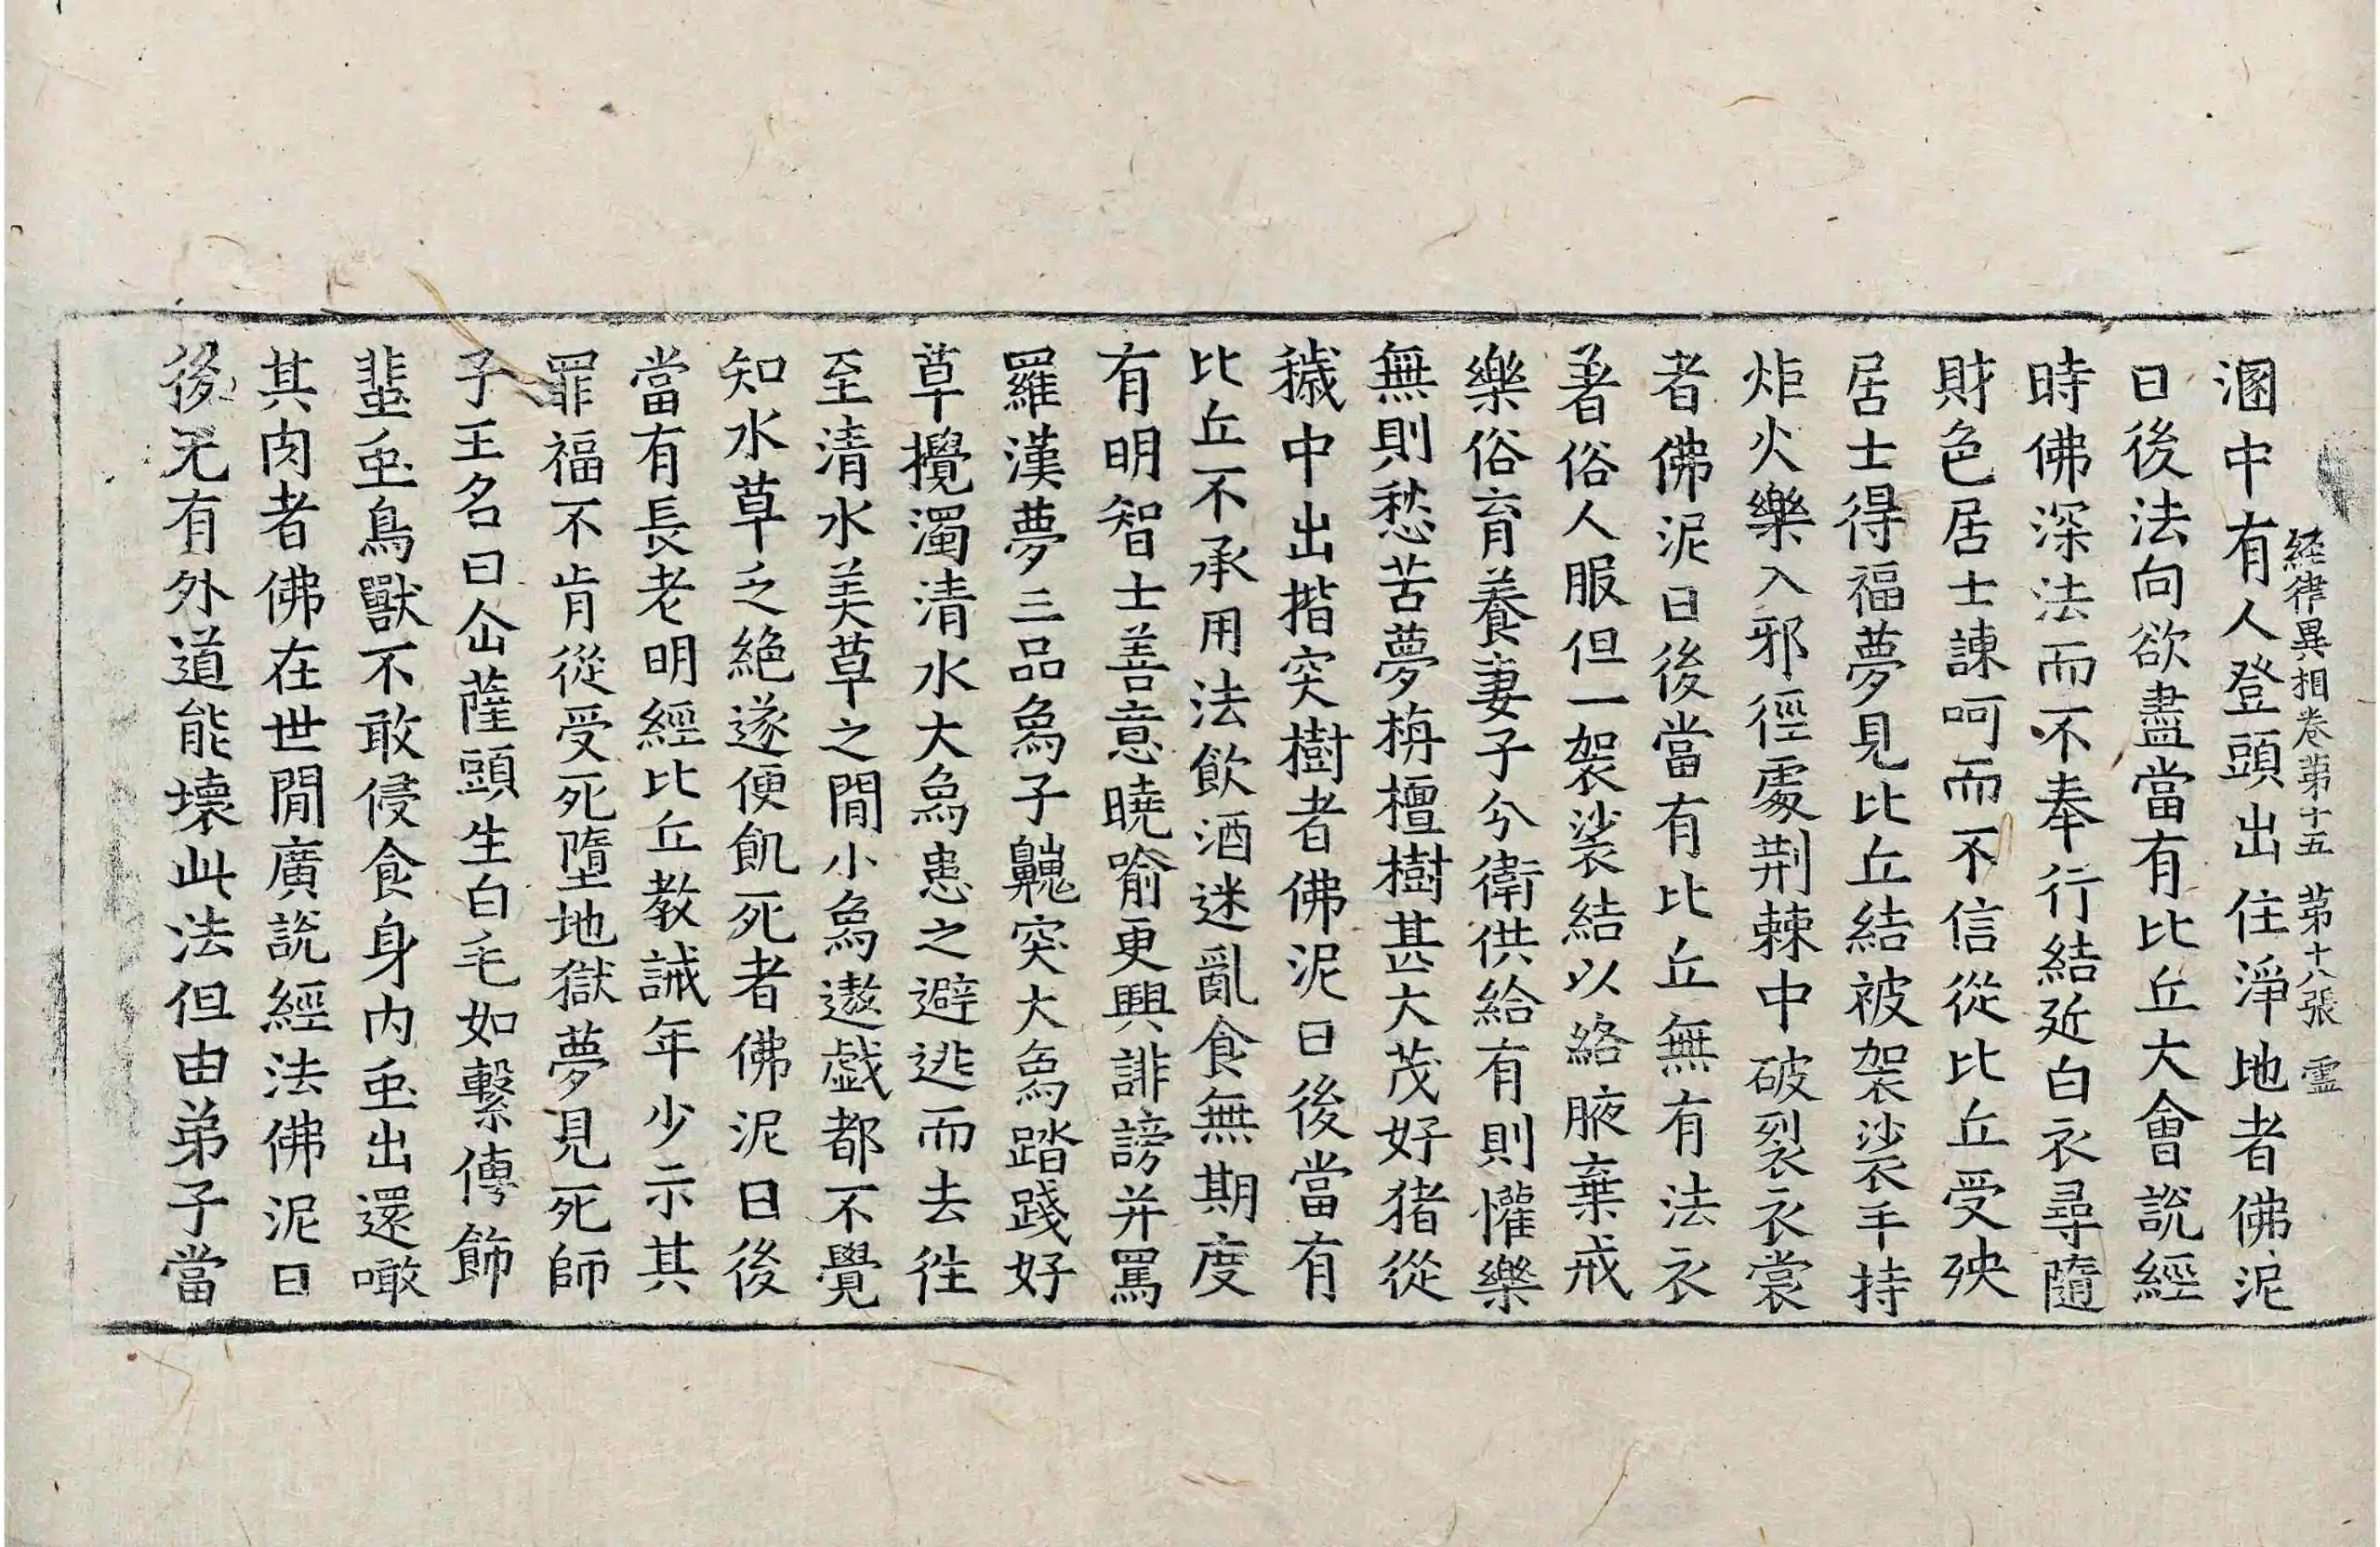 經律異相卷第十五 第十八張 靈
溷中有人登頭出住淨地者佛泥
曰後法向欲盡當有比丘大會說經
時佛深法而不奉行結近白衣尋隨
財色居士諫呵而不信從比丘受殃
居士得福夢見比丘結被袈裟手持
炬火樂入邪徑處荆棘中破裂衣裳
者佛泥曰後當有比丘無有法衣
著俗人服但一袈裟結以絡腋棄戒
樂俗育養妻子兮衛供給有則懽樂
無則愁苦夢栴檀樹甚大茂好猪從
穢中出揩突樹者佛泥曰後當有
比丘不承用法飲酒迷亂食無期度
有明智士善意曉喻更興誹謗并罵
羅漢夢三品爲子突大爲踏踐好
草攪濁清水大爲患之避逃而去徃
至清水美草之間小爲遨戲都不覺
知水草乏絶遂便飢死者佛泥曰後
當有長老明經比丘教誡年少示其
罪福不肯從受死墮地獄夢見死師
子王名曰薩頭生白毛如繫傅飾
蜚䖝鳥獸不敢侵食身內䖝出還噉
其肉者佛在世間廣說經法佛泥曰
後无有外道能壞此法但由弟子當